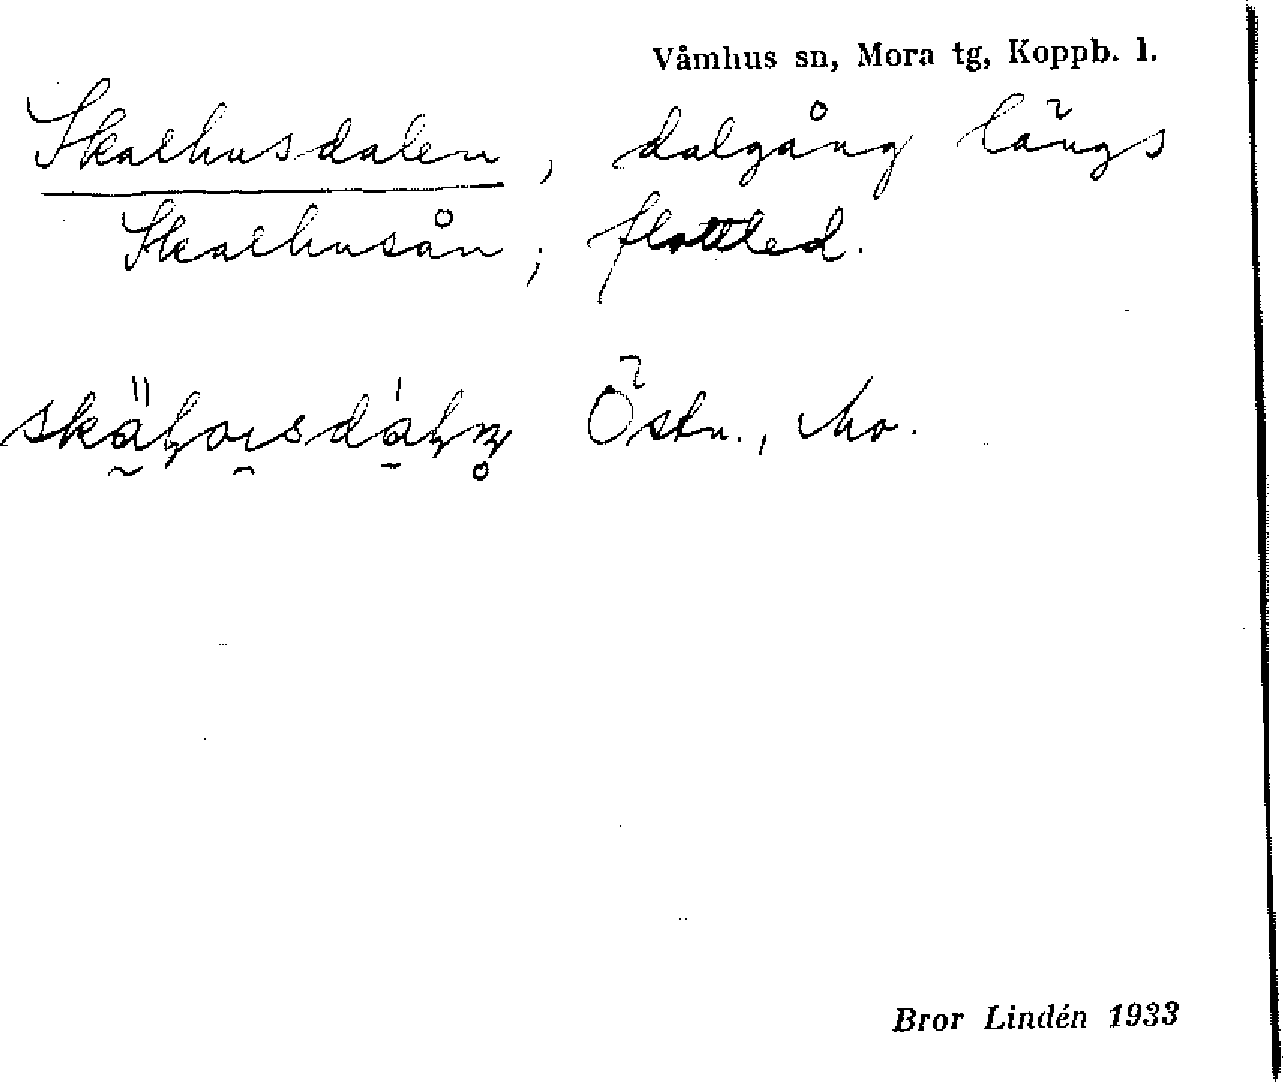 Våmhus sn, Mora tg, Koppb. l.
Skalhusdalen, dalgång längs
Skalhusån; flottled.
Östn., Mo.
Bror Lindén 1933